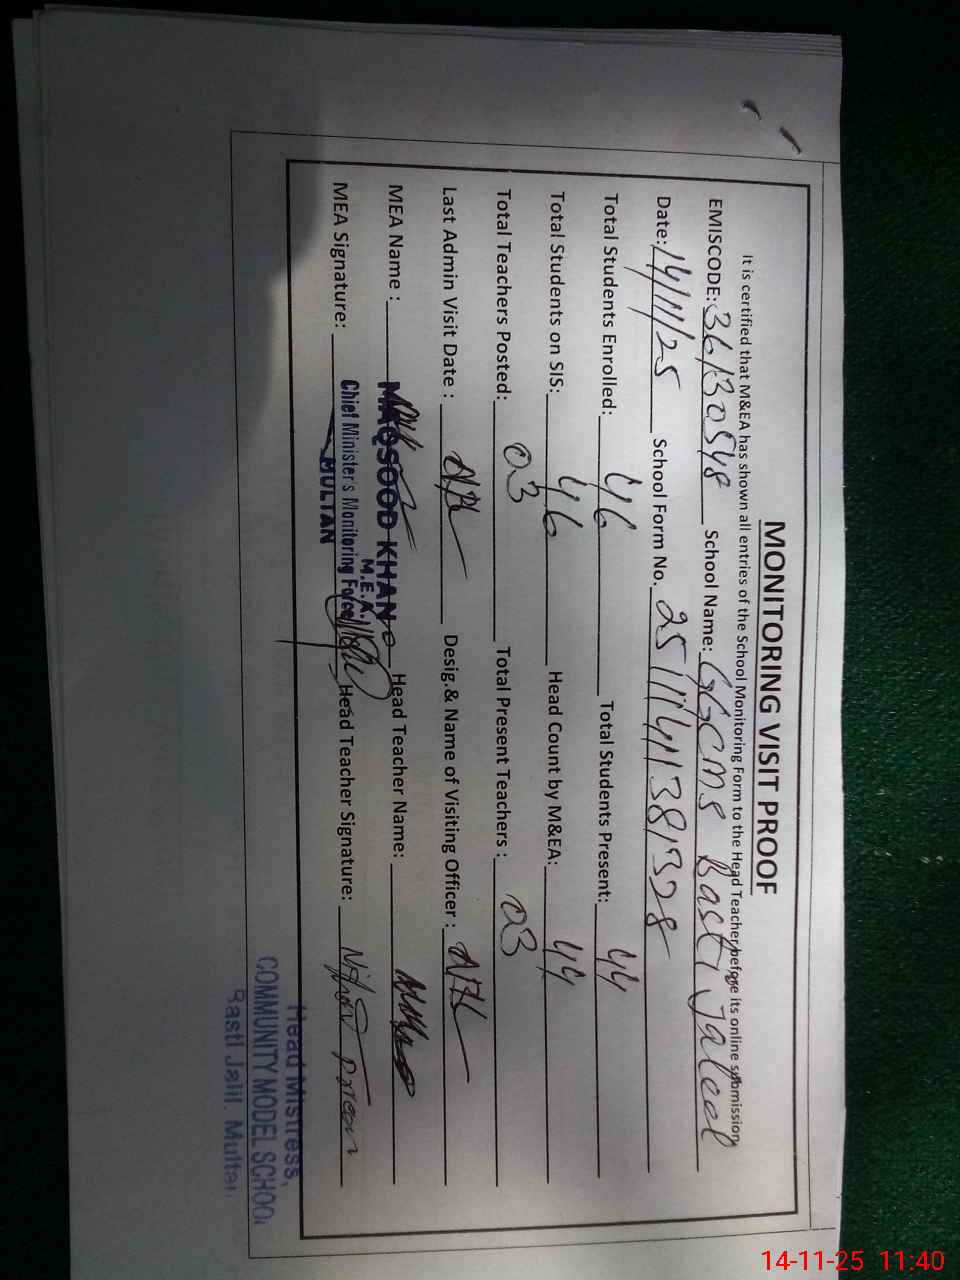 MONITORING VISIT PROOF
It is certified that M&EA has shown all entries of the School Monitoring Form to the Head Teacher before its online submission
EMISCODE: 36130548 School Name: GGCMS Basti Jaleel
Date: 14/11/25 School Form No. 25111411381328
Total Students Enrolled: 46 Total Students Present: 44
Total Students on SIS: 46 Head Count by M&EA: 44
Total Teachers Posted: 03 Total Present Teachers: 03
Last Admin Visit Date : Desig.& Name of Visiting Officer :
MEA Name : MAQSOOD KHAN Head Teacher Name:
M.E.A.
Chief Minister's Monitoring Force
MEA Signature: MULTAN Head Teacher Signature:
Head Mistress,
COMMUNITY MODEL SCHOOL
Basti Jalil. Multan
14-11-25 11:40